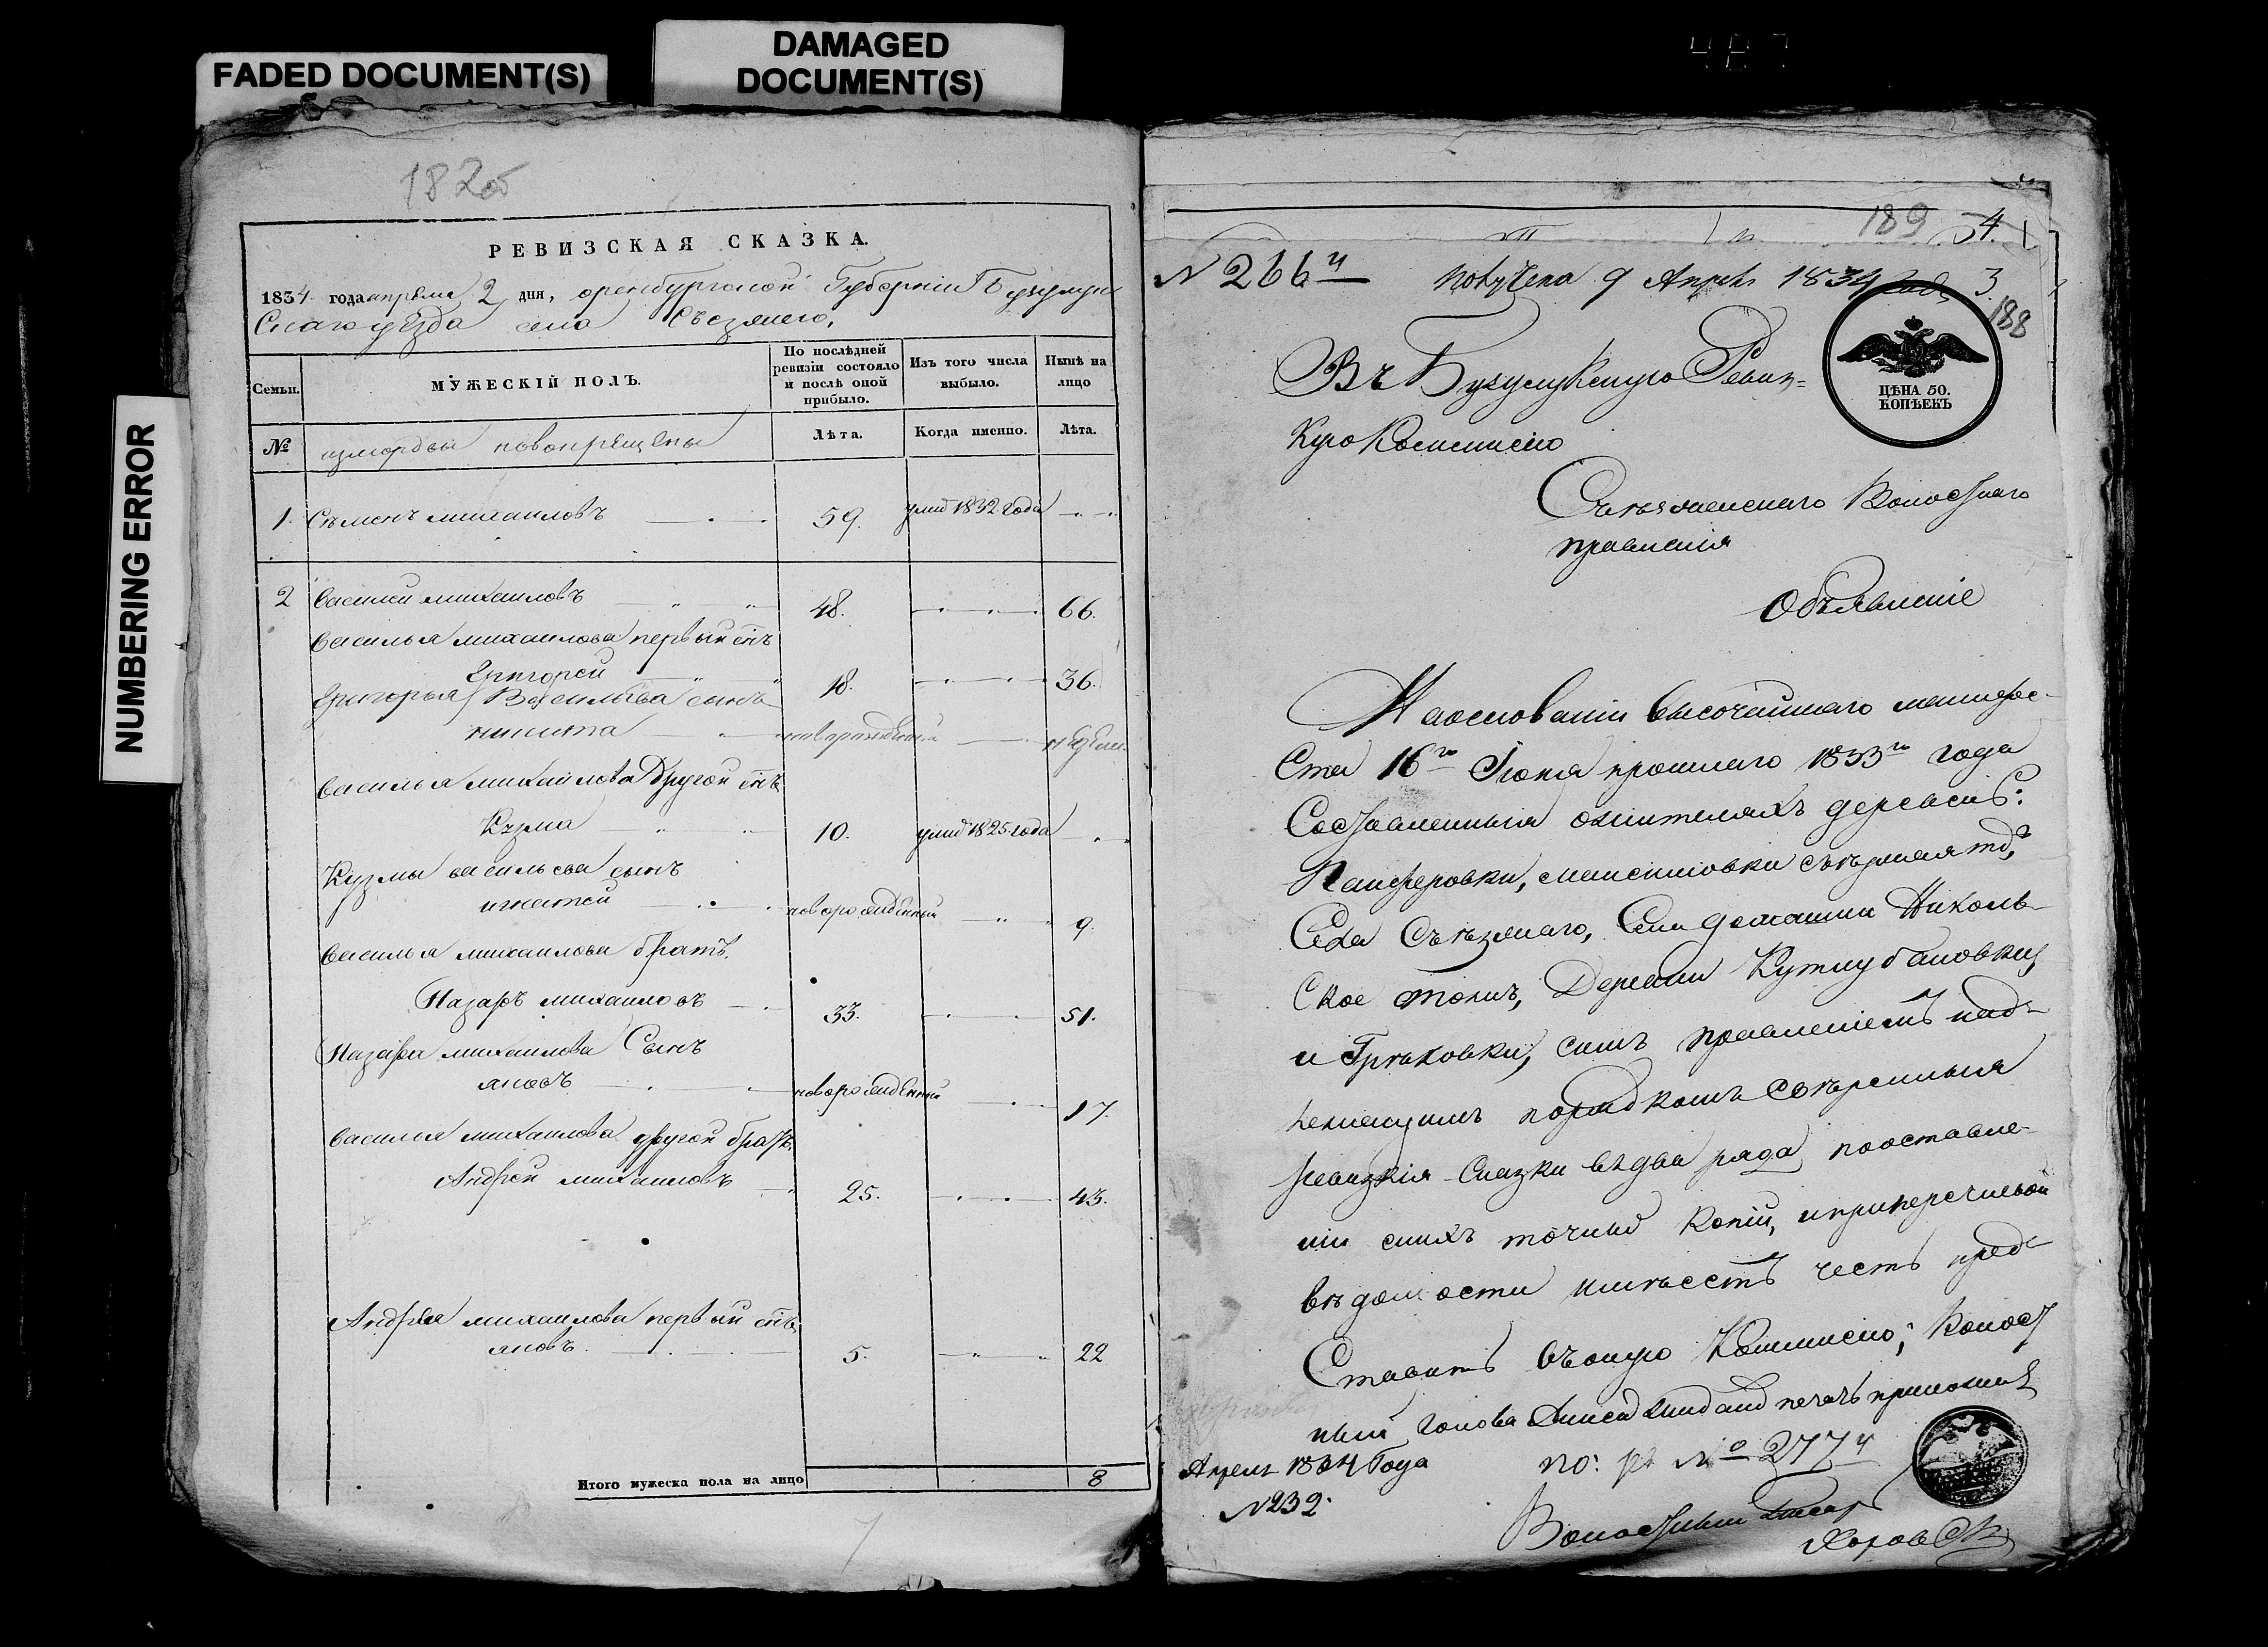 FADED DOCUMENT(S)
DAMAGED
DOCUMENT(S)
NUMBERING ERROR
487
182об
РЕВИЗСКАЯ СКАЗКА.
1834 года апреля 2 дня, оренбургской Губернии Бузулук
Скаго уѣзда села Съезжего,
Семьи.
МУЖЕСКІЙ ПОЛЪ.
По послѣдней ревизіи состояло и послѣ оной прибыло.
Изъ того числа выбыло.
Нынѣ на лицо
№
измордвы новокрещены
Лѣта.
Когда именно.
Лѣта.
1. Семенъ михаиловъ 59. умѣ 1832 года
2 Василий михаиловъ 48. 66.
Василья михаилова первый снъ
Григорей 18. 36.
Григорья Васильева сынъ
никита новорожденный недели
Василья михаилова Другой снъ
Кузма 10. умѣ 1825 года
Кузмы васильева сынъ
игнатей новорожденный 9.
Василья михаилова братъ.
Назаръ михаиловъ 33. 51.
Назара михаилова Сынъ
яковъ новорожденный 17.
Василья михаилова другой братъ
Андрей михаиловъ 25. 43.
Андрея михаилова первый снъ
яковъ. 5. 22
Итого мужеска пола на лицо 8
189 4
N 266й получена 9 Апреля 1834 года 3
188
ЦѢНА 50.
КОПѢЕКЪ
Въ Бузулукскую Ревиз=
Кую Коммисию
Съезжаенскаго Волостнаго
правления
Объявление
На основании высочайшаго манифе-
Ста 16го Июня прошлаго 1833го года
Составленныя ожителяхъ деревень:
Села Съезжаго, Сел домашки Николь-
Ское тожъ, Деревни Кутлубановки,
и Грековки, симъ правлениемъ над-
лежащимъ порядкомъ Соверенныя
ревизкия Сказки въ два ряда пооставле-
нии сихъ точныя копии, иприперечневой
ведомости имеетъ честь пред-
Ставить въоную Коммисию; Волост
ный голова печать приложил
Апреля 1834 Года по: N° 277й
N232.
Волостный Писарь